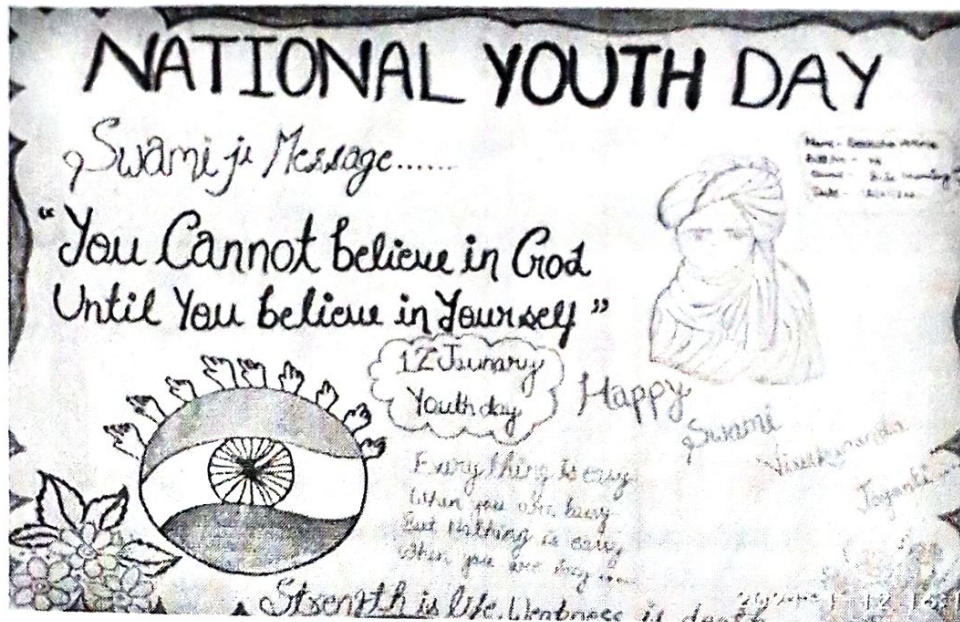 NATIONAL YOUTH DAY
Swami ji Message.......
Name -
Date -
"You Cannot believe in God
Until You believe in Yourself"
12 Jaunary
Youth day
Happy
Swami
Vivekananda
Jayanti
Every thing is easy
When you are busy
But Nothing is easy
When you are lazy ....
Strength is life, Weakness is death